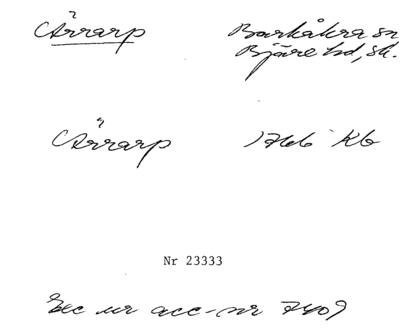 Ärrarp
Barkåkra sn
Bjäre hd, sk.
Ärrarp
1766 Kb
Nr 23333
nr acc-nr 7409